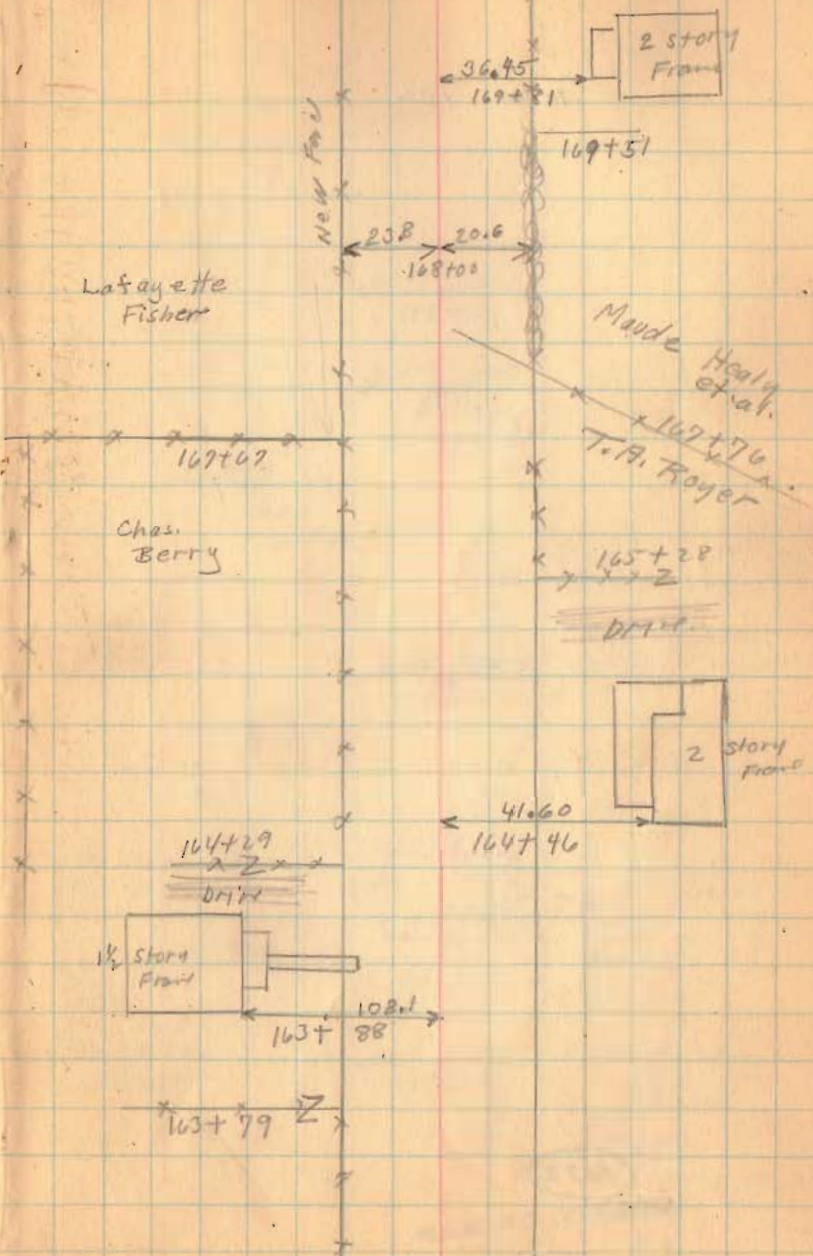 2 Story
Frame
36.45
169+81
169+51
New Fence
23.8
20.6
168+00
Lafayette
Fisher
Maude Healy
et.al.
167+76
T.A. Royer
167+67
Chas.
Berry
165+28
Z
Drive
2 Story
Frame
41.60
164+46
164+29
Z
Drive
1½ Story
Frame
108.1
163+88
163+79
Z